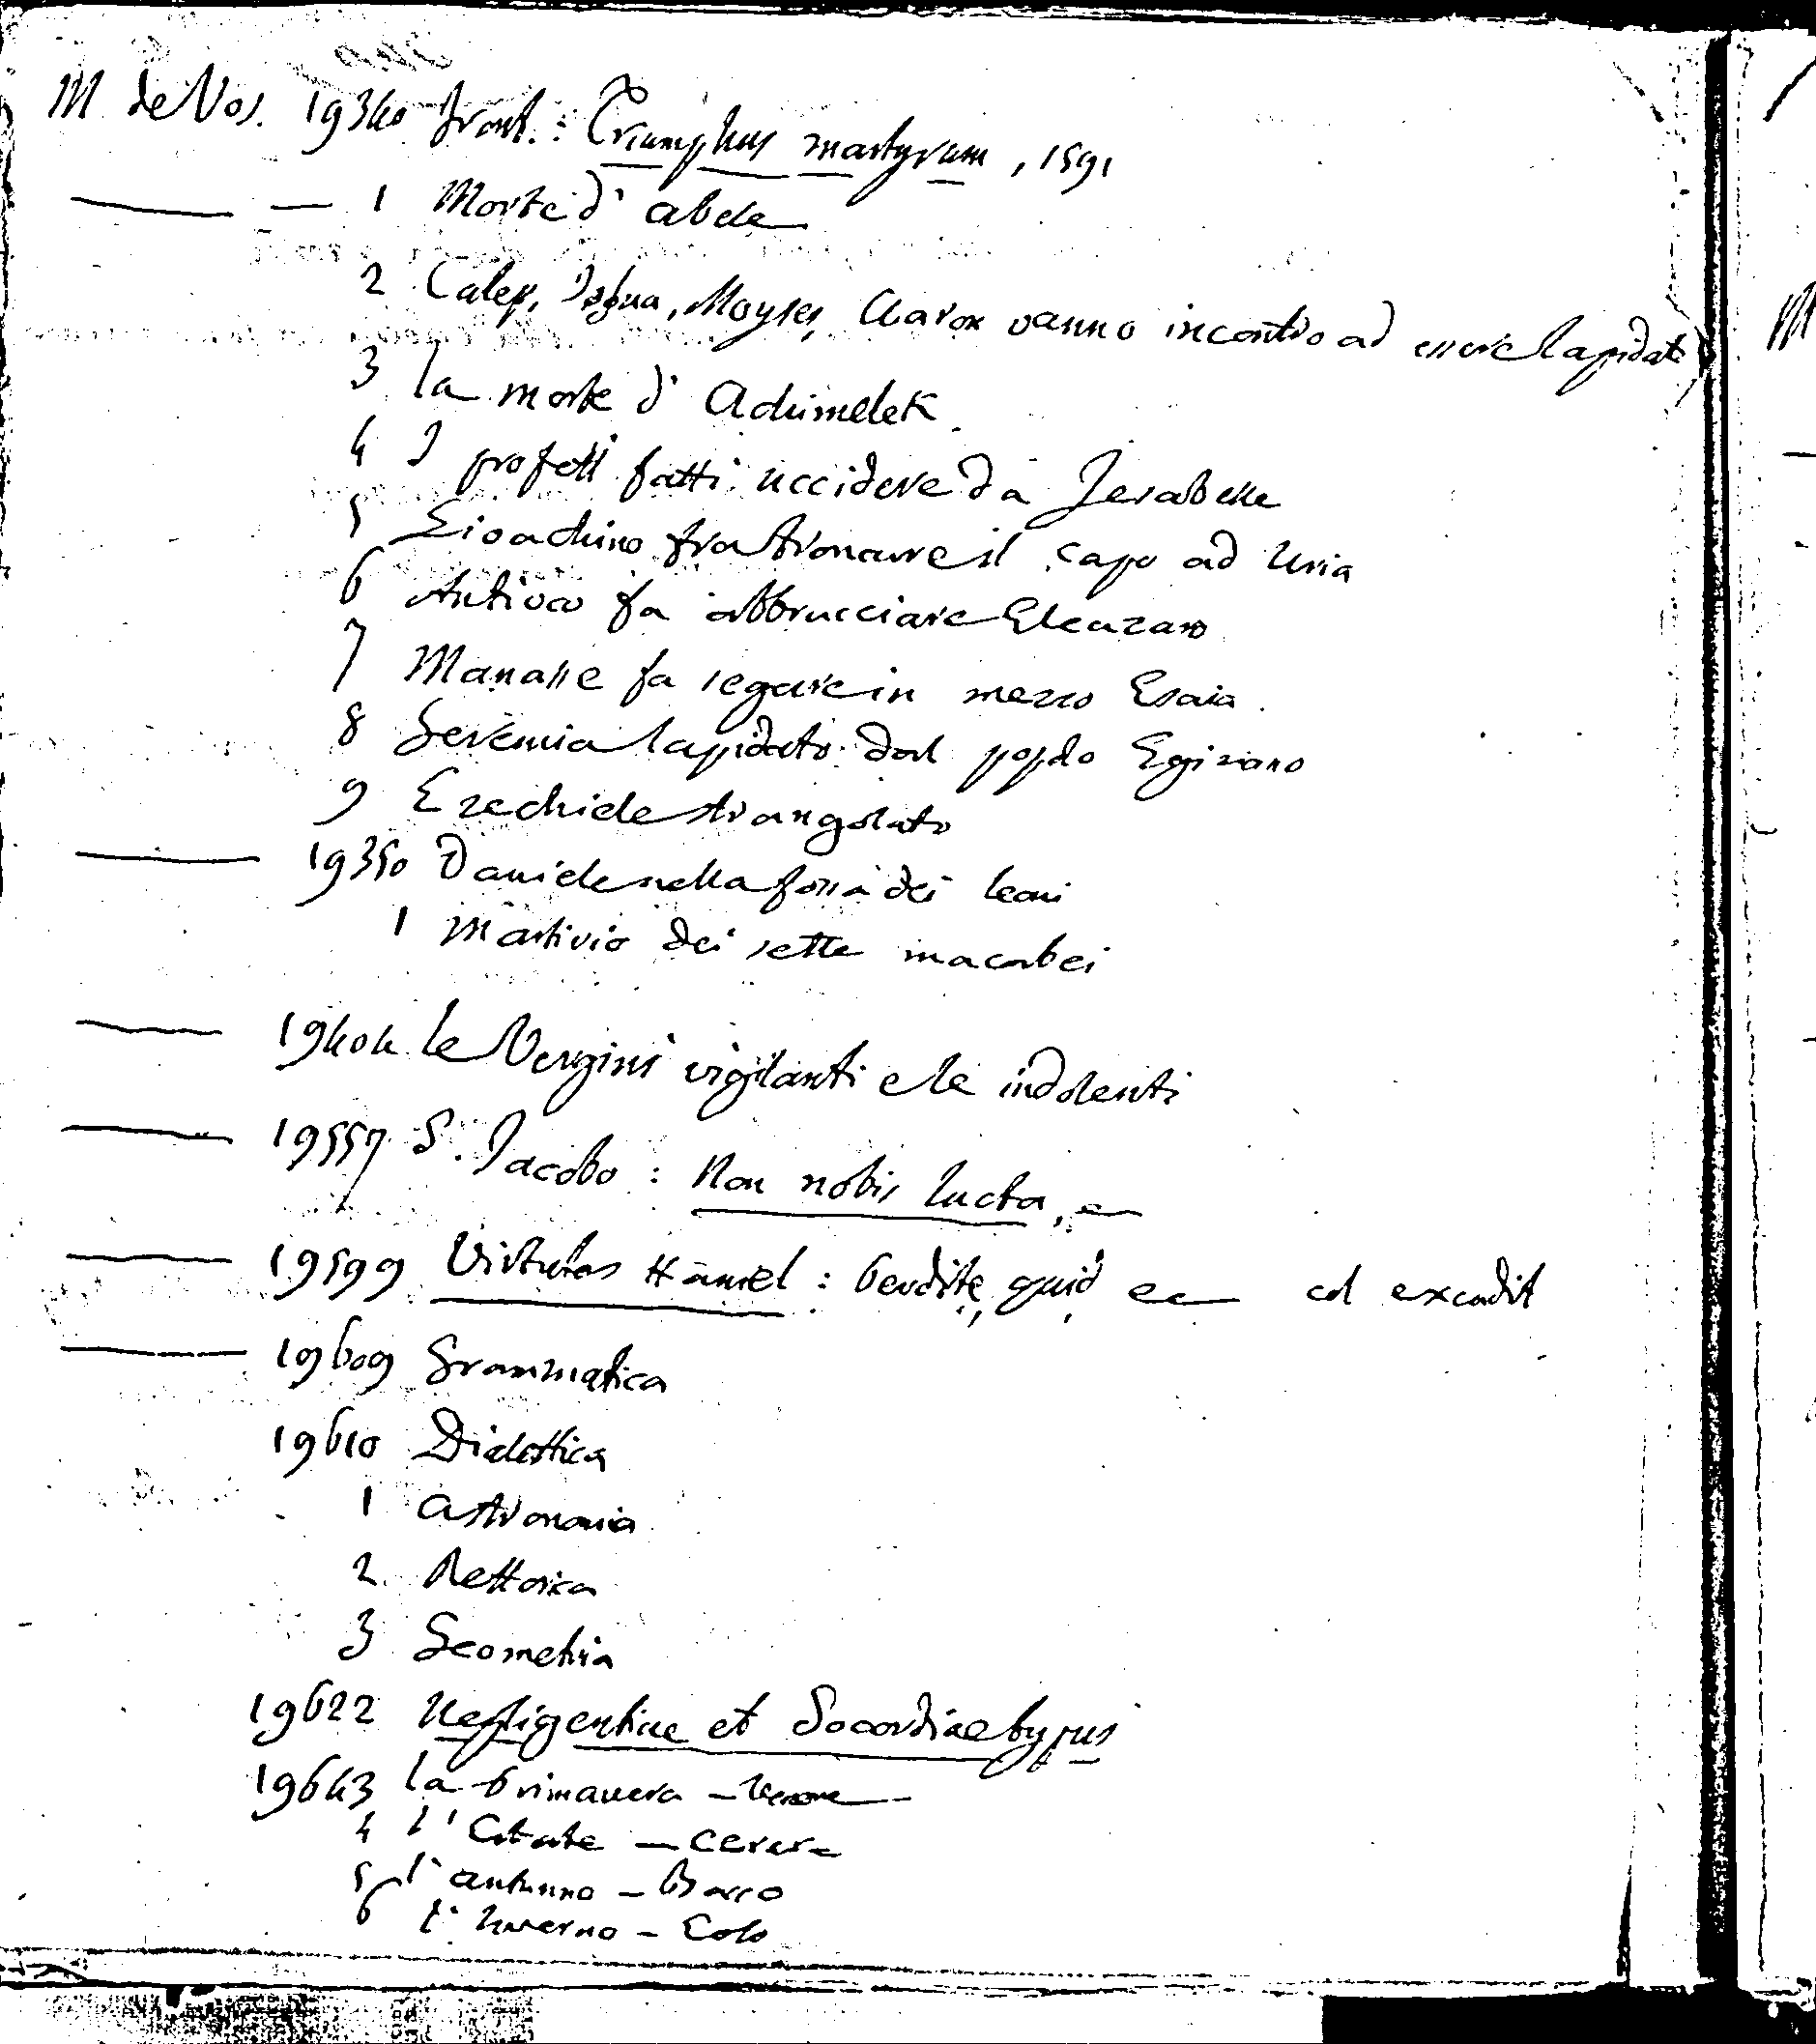 M de Vos. 19340 front.: Triumphus martyrum, 1591
— — 1 Morte d' abele
2 Calep, Josua, Moyses, Aaron vanno incontro ad essere lapidati
3 la morte d' Achimelek
4 I profeti fatti uccidere da Jesabelle
5 Gioachino fra troncare il capo ad Uria
6 Antioco fa abbrucciare Eleazaro
7 Manasse fa segare in mezzo Esaia
8 Geremia lapidato dal popolo Egiziano
9 Ezechiele strangolato
— 19350 Daniele nella fossa dei leoni
1 Martirio dei sette macabei
— 19404 le Vergini vigilanti e le indolenti
— 19557 S. Jacobo: Non nobis lucta,
— 19599 : quid ec excudit
— 19609 Grammatica
19610 Dialettica
1 Astronomia
2 Rettorica
3 Geometria
19622 Negligentiae et Socordiae typus
19643 la Primavera – Venere
4 l' Estate – Cerere
5 l' autunno – Bacco
6 l' Inverno – Eolo